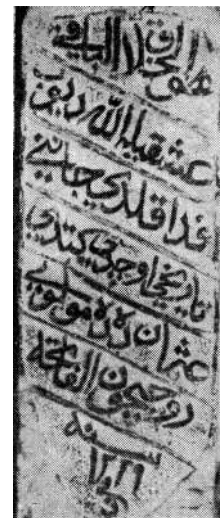 هو الخلاق الباقي
عشقيله الله ديوب
فدا قلدي جانني
تاريخي اوجدي كيتدي
عثمان دده مولوي
روحيچون الفاتحه
سنه
١٢٢٩